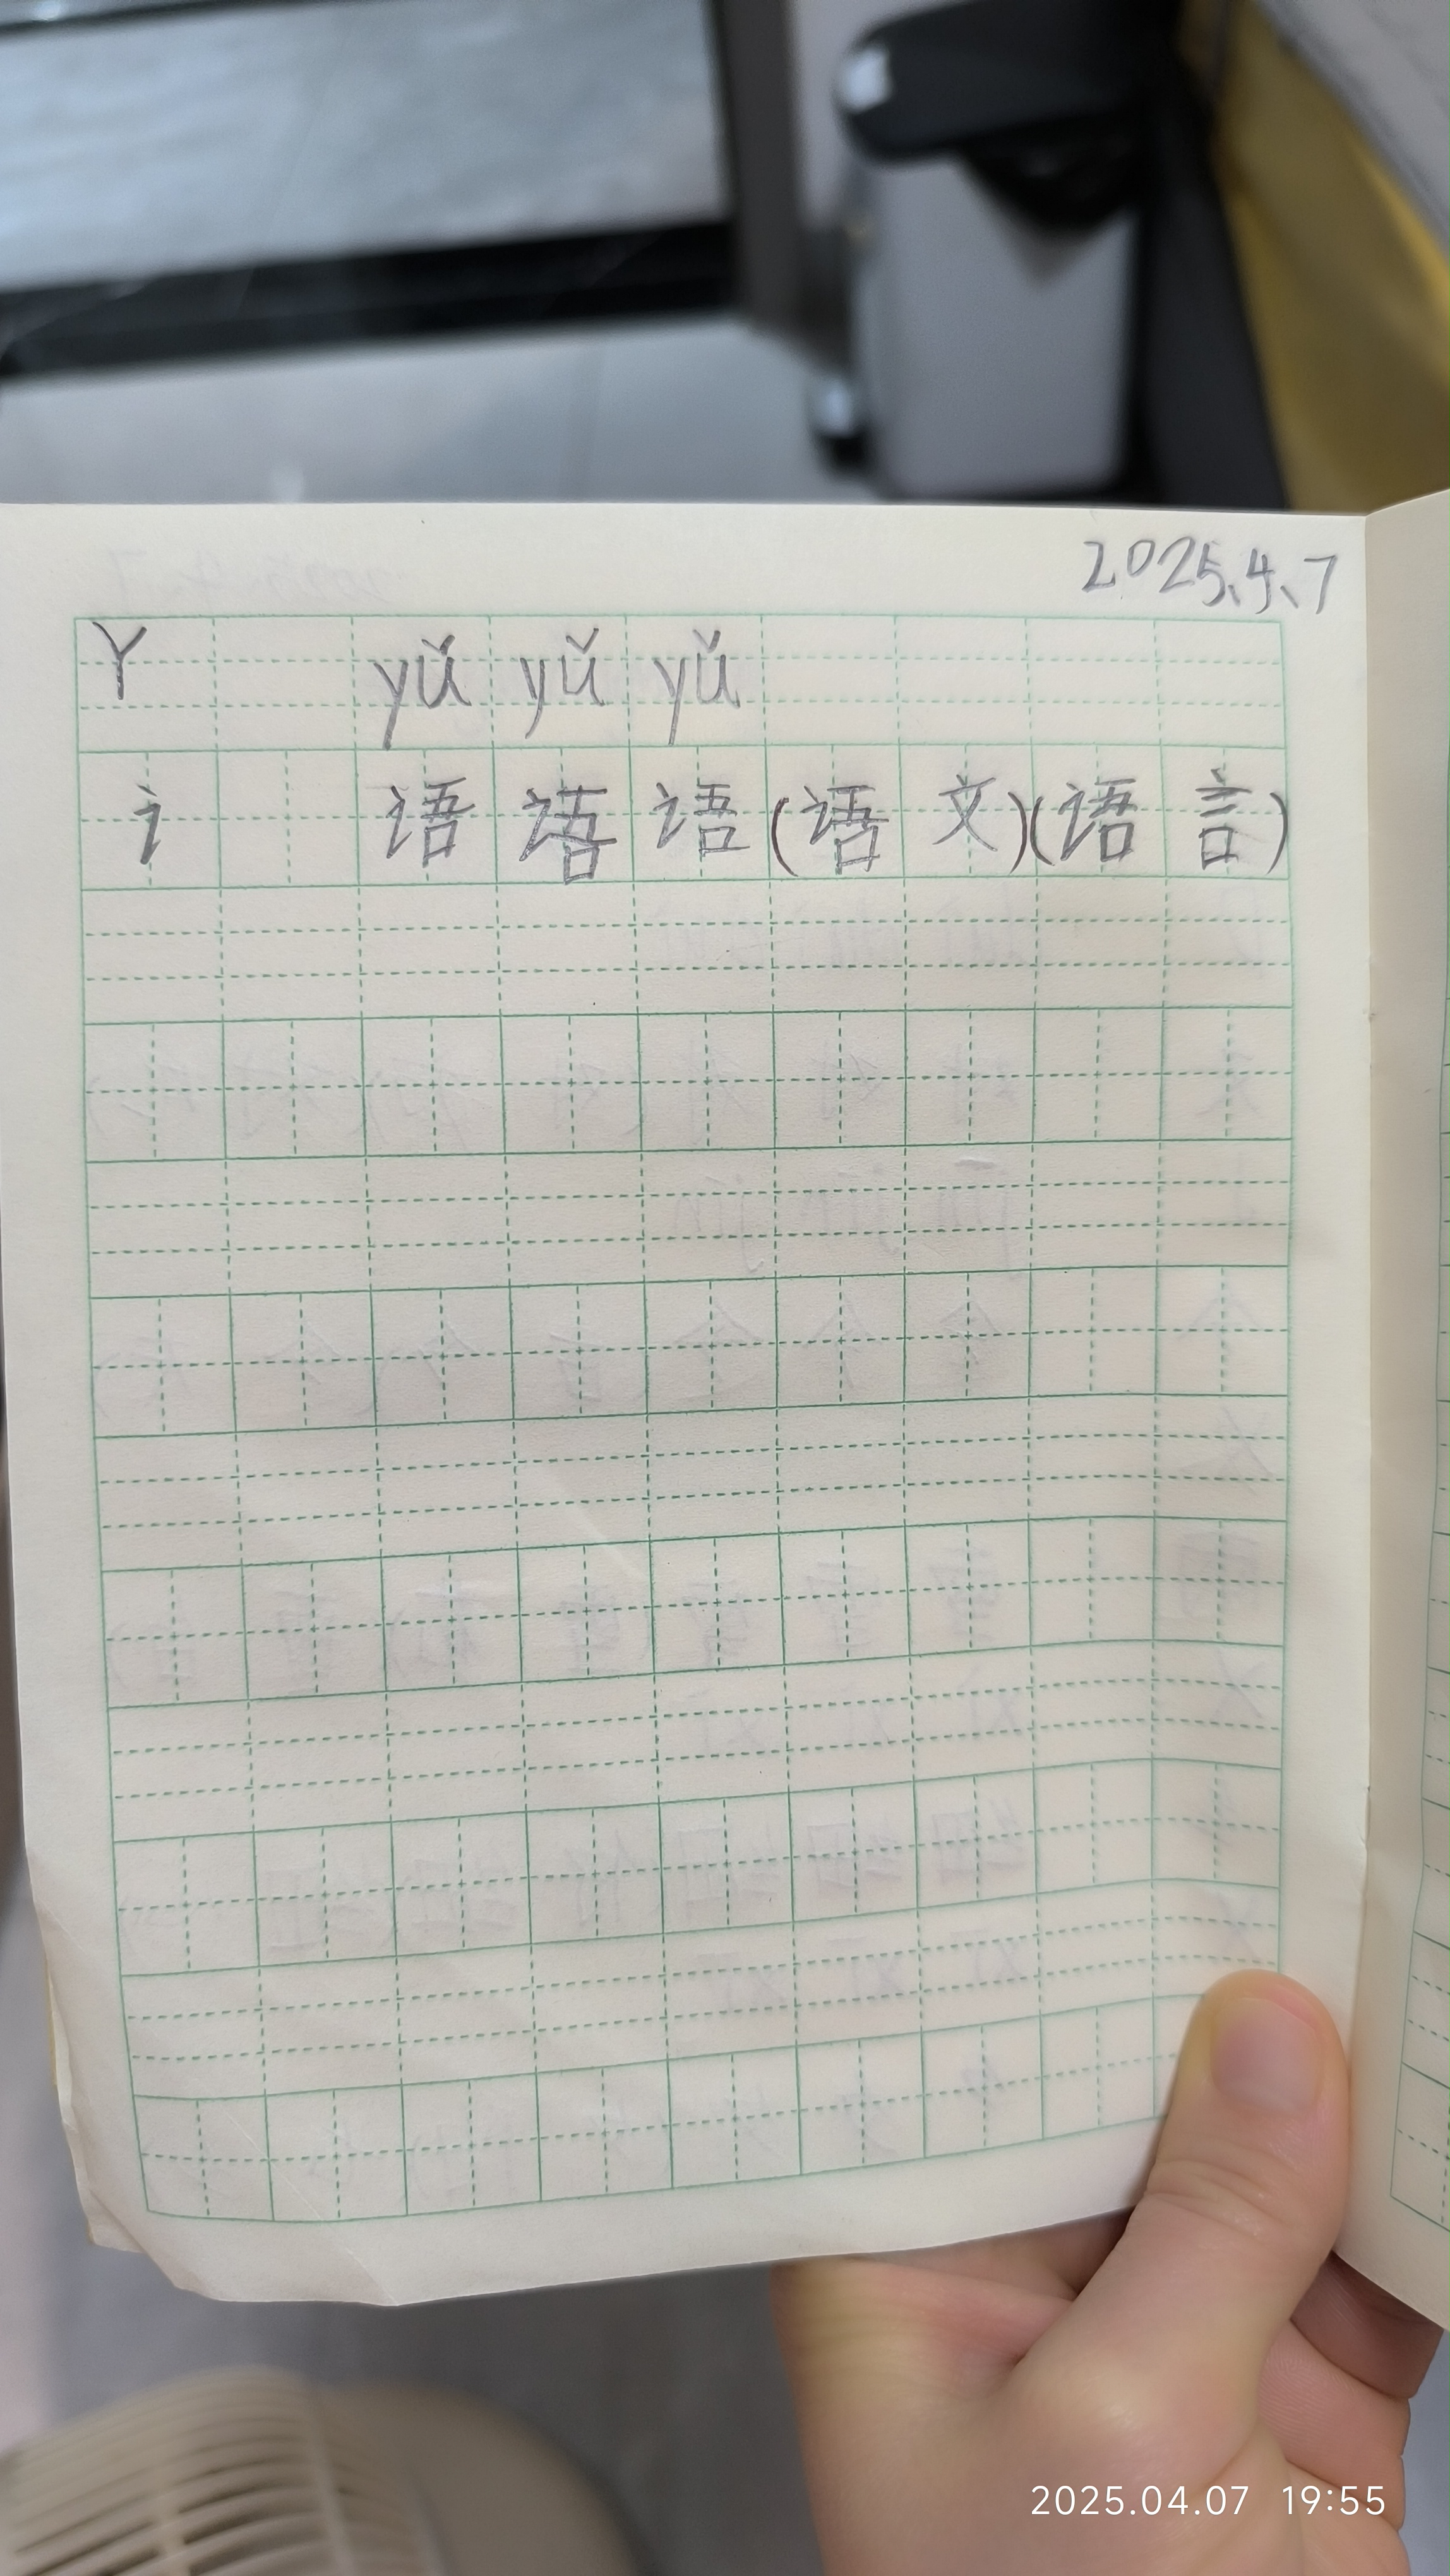 2025、4、7
Y yǔ yǔ yǔ
讠 语 语 语 (语 文)(语 言)
2025.04.07 19:55